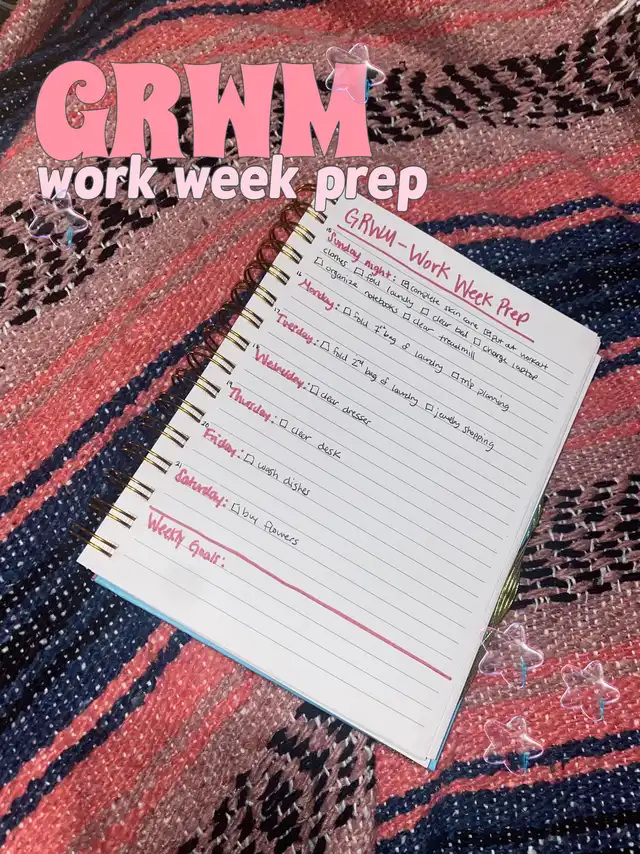 GRWM
work week prep
GRWM-Work Week Prep
15 Sunday night: ☑ complete skin care ☑ put out workout
clothes ☐ fold laundry ☐ clear bed ☐ charge laptop
☐ organize notebooks ☐ clear treadmill
16 Monday: ☐ fold 1st bag of laundry ☐ trip planning
17 Tuesday: ☐ fold 2nd bag of laundry ☐ jewelry shopping
18 Wednesday: ☐ clear dresser
19 Thursday: ☐ clear desk
20 Friday: ☐ wash dishes
21 Saturday: ☐ buy flowers
Weekly Goals: